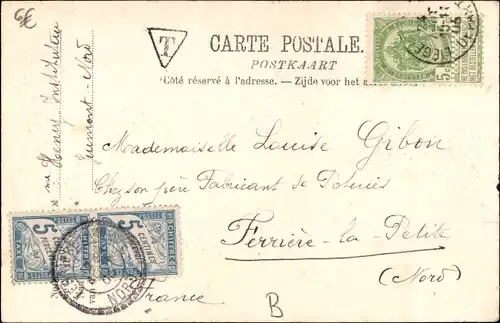 6€
T
CARTE POSTALE.
POSTKAART
Côté réservé à l'adresse. — Zijde voor het a
LIEGE
Mademoiselle Louise Gibon
Chez son père Fabricant de Poteries
Ferrière-la-Petite
(Nord)
France
B
Henry
Jeumont - Nord
5 CENTIMES
5 CENTIMES
NORD
5